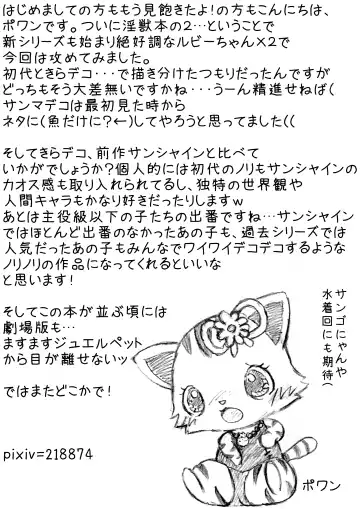 はじめましての方ももう見飽きたよ！の方もこんにちは、
ポワンです。ついに淫獣本の2…ということで
新シリーズも始まり絶好調なルビーちゃん×2で
今回は攻めてみました。
初代ときらデコ・・・で描き分けたつもりだったんですが
どっちもそう大差無いですかね・・・うーん精進せねば(
サンマデコは最初見た時から
ネタに(魚だけに？←)してやろうと思ってました((
そしてきらデコ、前作サンシャインと比べて
いかがでしょうか？個人的には初代のノリもサンシャインの
カオス感も取り入れられてるし、独特の世界観や
人間キャラもかなり好きだったりしますw
あとは主役級以下の子たちの出番ですね…サンシャイン
ではほとんど出番のなかったあの子も、過去シリーズでは
人気だったあの子もみんなでワイワイデコデコするような
ノリノリの作品になってくれるといいな
と思います！
そしてこの本が並ぶ頃には
劇場版も…
ますますジュエルペット
から目が離せないッ
ではまたどこかで！
サンゴにゃんや
水着回にも期待(
pixiv=218874
ポワン